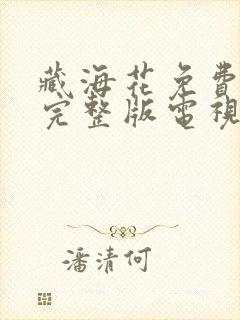 藏海花免費
完整版電視
潘清何